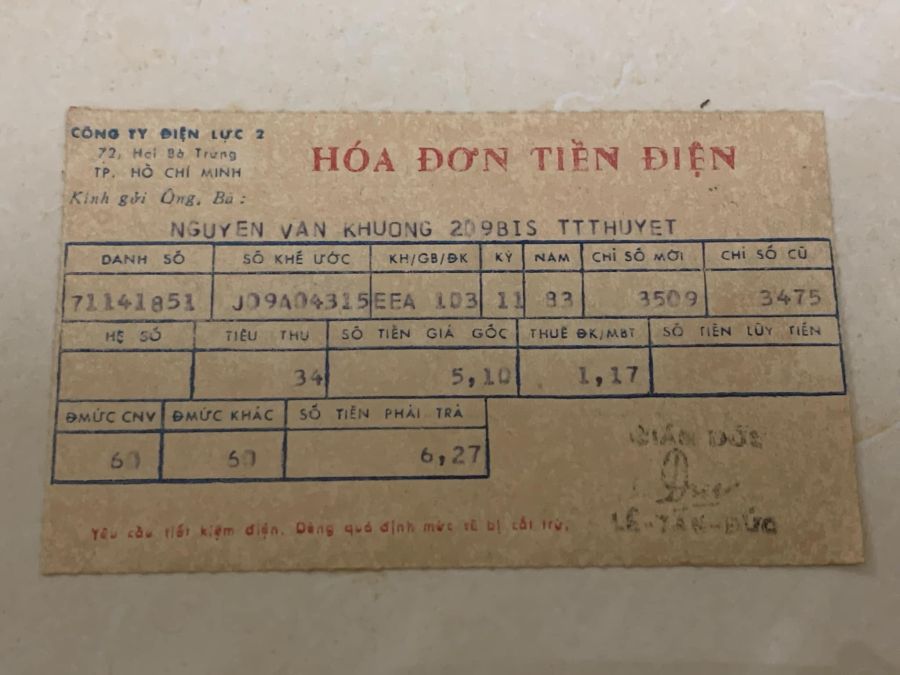 CÔNG TY ĐIỆN LỰC 2
72, Hai Bà Trưng
TP. HỒ CHÍ MINH
HÓA ĐƠN TIỀN ĐIỆN
Kính gởi Ông, Bà :
NGUYEN VAN KHUONG 209BIS TTTHUYET
DANH SỐ SỐ KHẾ ƯỚC KH/GB/ĐK KỲ NĂM CHỈ SỐ MỚI CHỈ SỐ CŨ
71141851 J09A04315 EEA 103 11 83 3509 3475
HỆ SỐ TIÊU THỤ SỐ TIỀN GIÁ GỐC THUẾ ĐK/MBT SỐ TIỀN LŨY TIẾN
34 5,10 1,17
ĐMỨC CNV ĐMỨC KHÁC SỐ TIỀN PHẢI TRẢ
60 60 6,27
GIÁM ĐỐC
LÊ-TẤN-ĐỨC
Yêu cầu tiết kiệm điện. Dùng quá định mức sẽ bị cắt trừ.